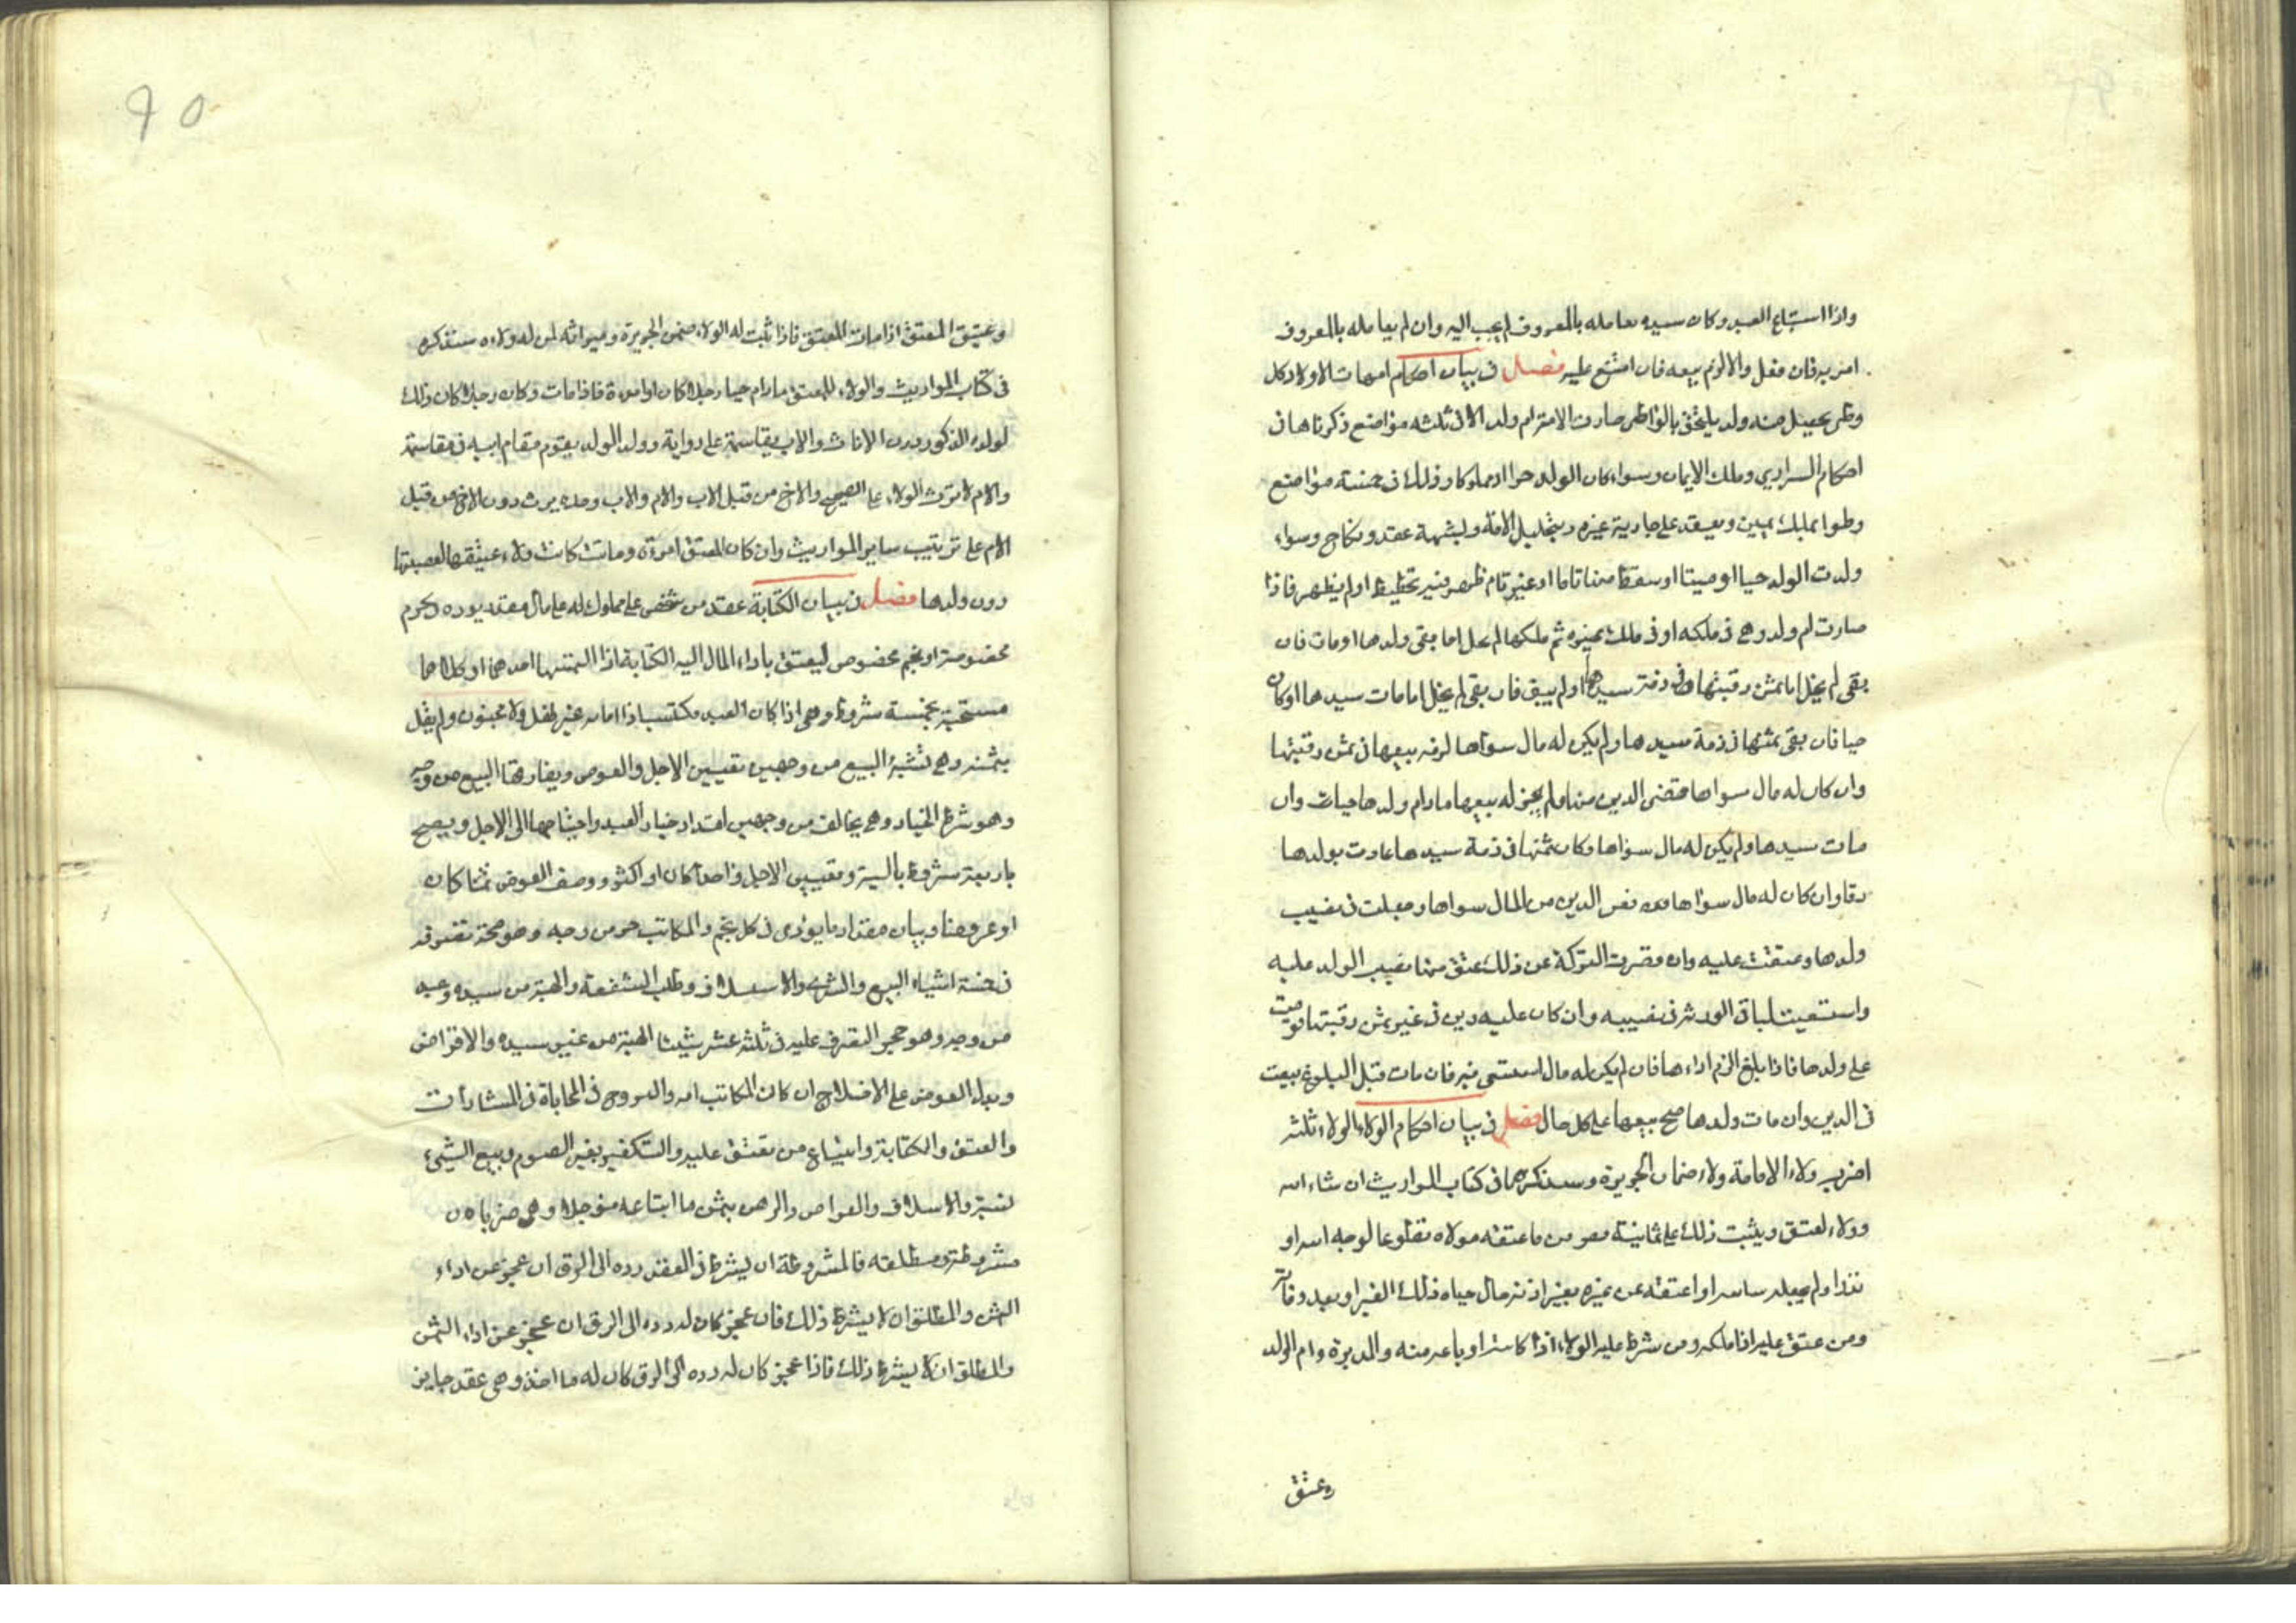 واذا استباع العبد وكان سيده يعامله بالمعروف لم يجب اليه وان لم يعامله بالمعروف
امر به فان فعل والا لزم بيعه فان امتنع عليه فصل في بيان احكام امهات الاولاد كل
وطى يحصل منه ولد يلتحق بالواطى صارت الامة ام ولد الا في ثلثه مواضع ذكرناها في
احكام السراري وملك الايمان وسواء كان الولد حرا او مملوكا وذلك في خمسة مواضع
وطوا بملك يمين وبعقد على جارية غيره وبتحليل الامة ولشبهة عقد ونكاح وسواء
ولدت الولد حيا او ميتا او سقط منها تاما او غير تام ظهر فيه تخطيط او لم يظهر فاذا
صارت ام ولد وهى في ملكه او في ملك غيره ثم ملكها لم يخل اما بقى ولدها او مات فان
بقى لم يخل اما ثمن رقبتها في ذمة سيدها او لم يبق فان بقى لم يخل اما مات سيدها او كان
حيا فان بقى ثمنها في ذمة سيدها ولم يكن له مال سواها لزمه بيعها في ثمن رقبتها
وان كان له مال سواها قضى الدين منه ولم يجز له بيعها مادام ولدها حيات وان
مات سيدها ولم يكن له مال سواها وكان ثمنها في ذمة سيدها عادت بولدها
رقا وان كان له مال سواها الدين من المال سواها وجعلت في نصيب
ولدها وعتقت عليه وان قصرت التركة عن ذلك عتق منها نصيب الولد عليه
واستسعيت لباقى الورثه في نصيبه وان كان عليه دين في غير ثمن رقبتها قومت
على ولدها فاذا بلغ الزم اداءها فان لم يكن له مال استسعى فيه فان مات قبل البلوغ بيعت
في الدين وان مات ولدها صح بيعها على كل حال فصل في بيان احكام الولاء الولاء ثلثه
اضرب ولاء الامامة ولاء ضمان الجريرة وسنذكرهما في كتاب المواريث ان شاء الله
وولاء لعتق ويثبت ذلك على ثمانية من ما عتقه مولاه تطوعا لوجه الله او
نذرا ولم يجعله سائبه او اعتقه عن غيره بغير اذنه حال حياه ذلك الغير او بعد وفاته
ومن عتق عليه اذا ملكه ومن شرط عليه الولاء اذا كاتبه او باعه منه والمدبرة وام الولد
وعتق
٩٥
وعتيق المعتق اذا مات المعتق فاذا ثبت له الولاء ضمن الجريرة وميراثه لمن له ولاءه سنذكره
في كتاب المواريث والولاء للمعتق مادام حيا رجلا كان او امرءة فاذا مات وكان رجلا كان ذلك
لولده الذكور دون الاناث والاب يقاسمه على رواية وولد الولد يقوم مقام ابيه في مقاسمة
والام لا ترث الولاء على الصحيح والاخ من قبل الاب والام والاب وحده يرث دون الاخ من قبل
الام على ترتيب ساير المواريث وان كان المعتق امرءة وماتت كانت ولاء عتيقها لعصبتها
دون ولدها فصل في بيان الكتابة عقد من شخص على مملوك له على مال معقد يوده نجوم
مخصوصة او نجم مخصوص ليعتق باداء المال اليه الكتابة اذا التمسها احدهما او كلاهما
مستحبة بخمسة شروط وهى اذا كان العبد مكتسبا ذا امانه غير طفل ولا مجنون ولم يغل
بثمنه وهى تشبه البيع من وجهين تعيين الاجل والعوض ويفارقها البيع من وجه
وهو شرط الخيار وهى يخالف من وجهين امتداد خيار العبد واحيتاجها الى الاجل ويصح
باربعة شروط بالنية وتعيين الاجل واحدا كان او اكثر ووصف العوض ثمنا كان
او عروضا وبيان مقدار ما يؤدى في كل نجم والمكاتب حر من وجه وهو صحة تصرفه
في خمسة اشياء البيع والشرى والاستسلاف وطلب الشفعة والهبة من سيده وعبد
من وجه وهو حجر التصرف عليه في ثلثه عشر شيئا الهبة من غير سيده والاقراض
وبذل العوض على الاختلاع ان كان المكاتب امه والتزوج في المحاباة في المشارات
والعتق والكتابة وابتياع من يعتق عليه والتكفير بغير الصوم وبيع الشىء
نسية والاسلاف والقراض والرهن بثمن ما ابتاعه مؤجلا وهى ضربان
مشروطة ومطلقه فالمشروطة ان يشرط في العقد رده الى الرق ان عجز عن اداء
الثمن والمطلق ان لا يشرط ذلك فان عجز كان له رده الى الرق ان عجز عن اداء الثمن
والمطلق ان لا يشرط ذلك فاذا عجز كان له رده الى الرق كان له ما اخذ وهى عقد جايز